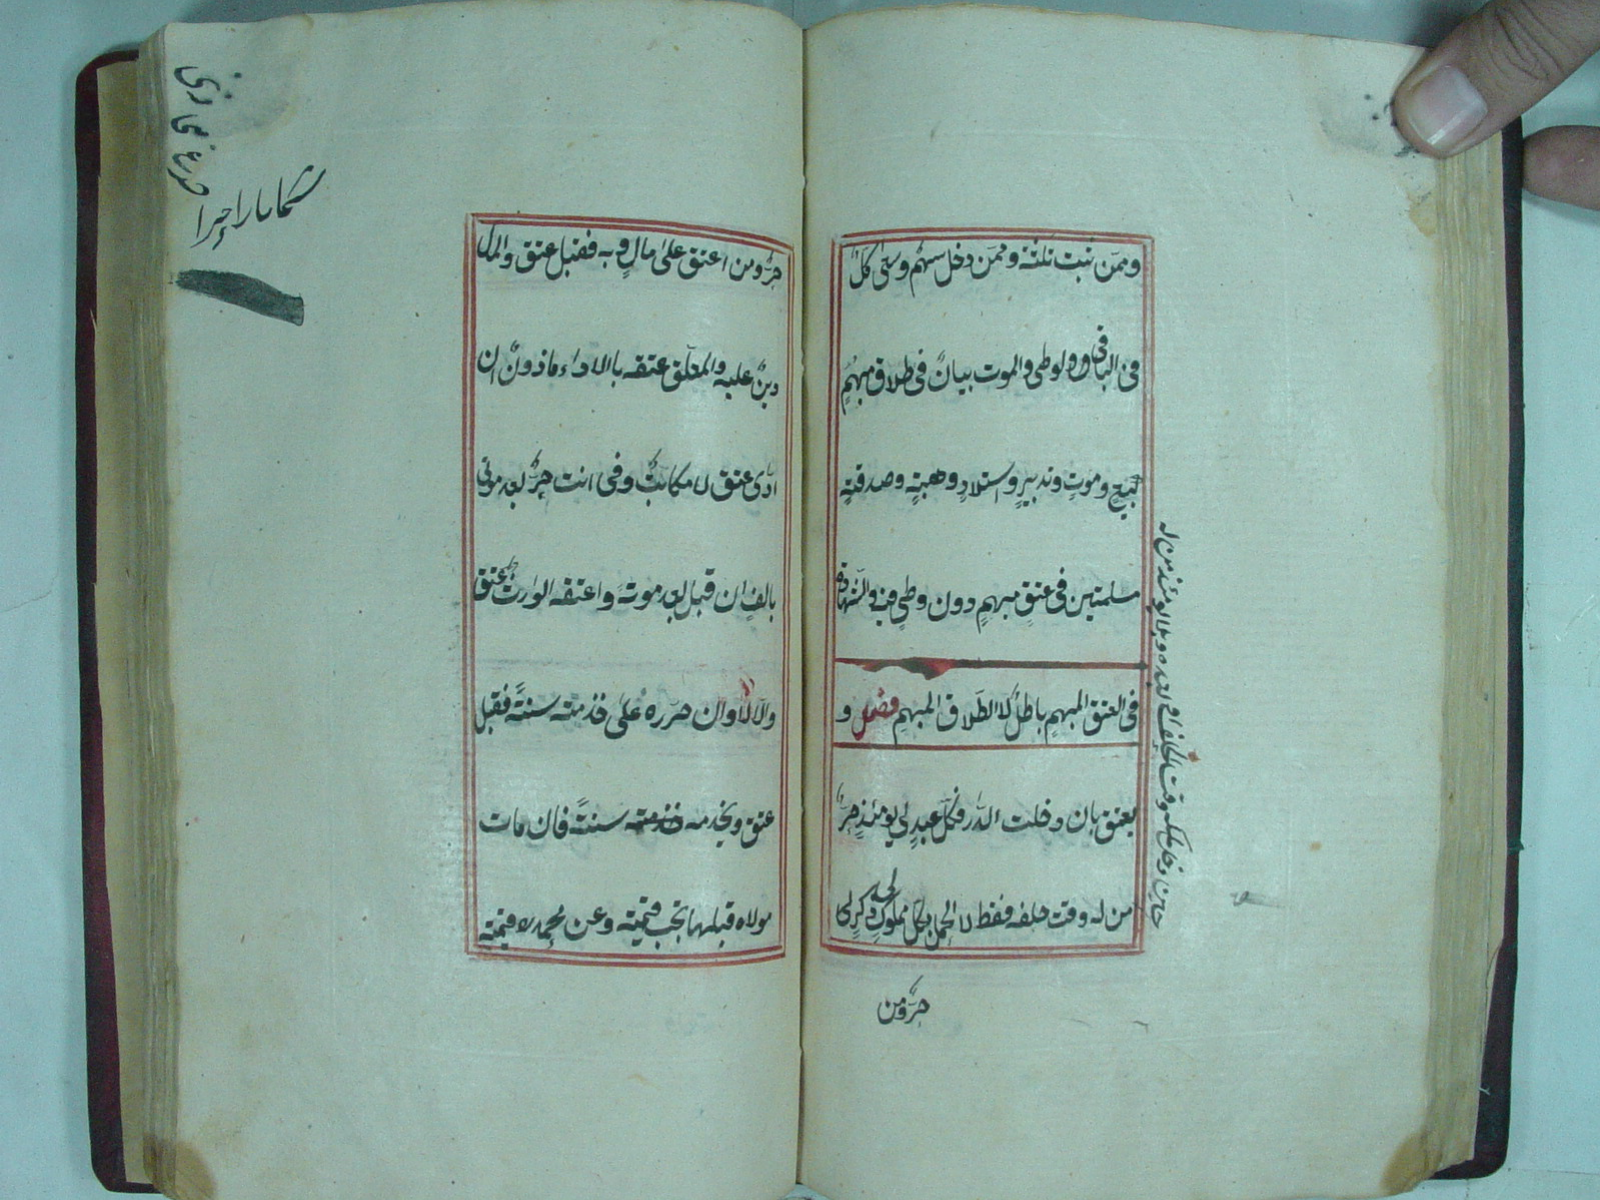 وممن ثبت ثلثة وممن دخل سهم وسعى كل
في الباقي والوطي والموت بيان في طلاق مبهم
كبيع وموت وتدبير واستلاد وهبة وصدقة
مسلمتين في عتق مبهم دون وطي فيه والشهادة
في العتق المبهم باطل لا الطلاق المبهم فصل و
يعتق بان دخلت الدار فكل عبد لي يومئذ حر
من له وقت حلفه فقط لا الحمل بكل مملوك لي ذكر
حر ومن
حر ومن اعتق على مال و به فقبل عتق والمال
دين عليه والمعلق عتقه بالاداء ماذون ان
ادى عتق لا مكاتب وفي انت حر بعد موتي
بالف ان قبل بعد موته واعتقه الوارث عتق
والا لا وان حرره على خدمته سنة فقبل
عتق ويخدمه خدمته سنة فان مات
مولاه قبلها تجب قيمته وعن محمد قيمته